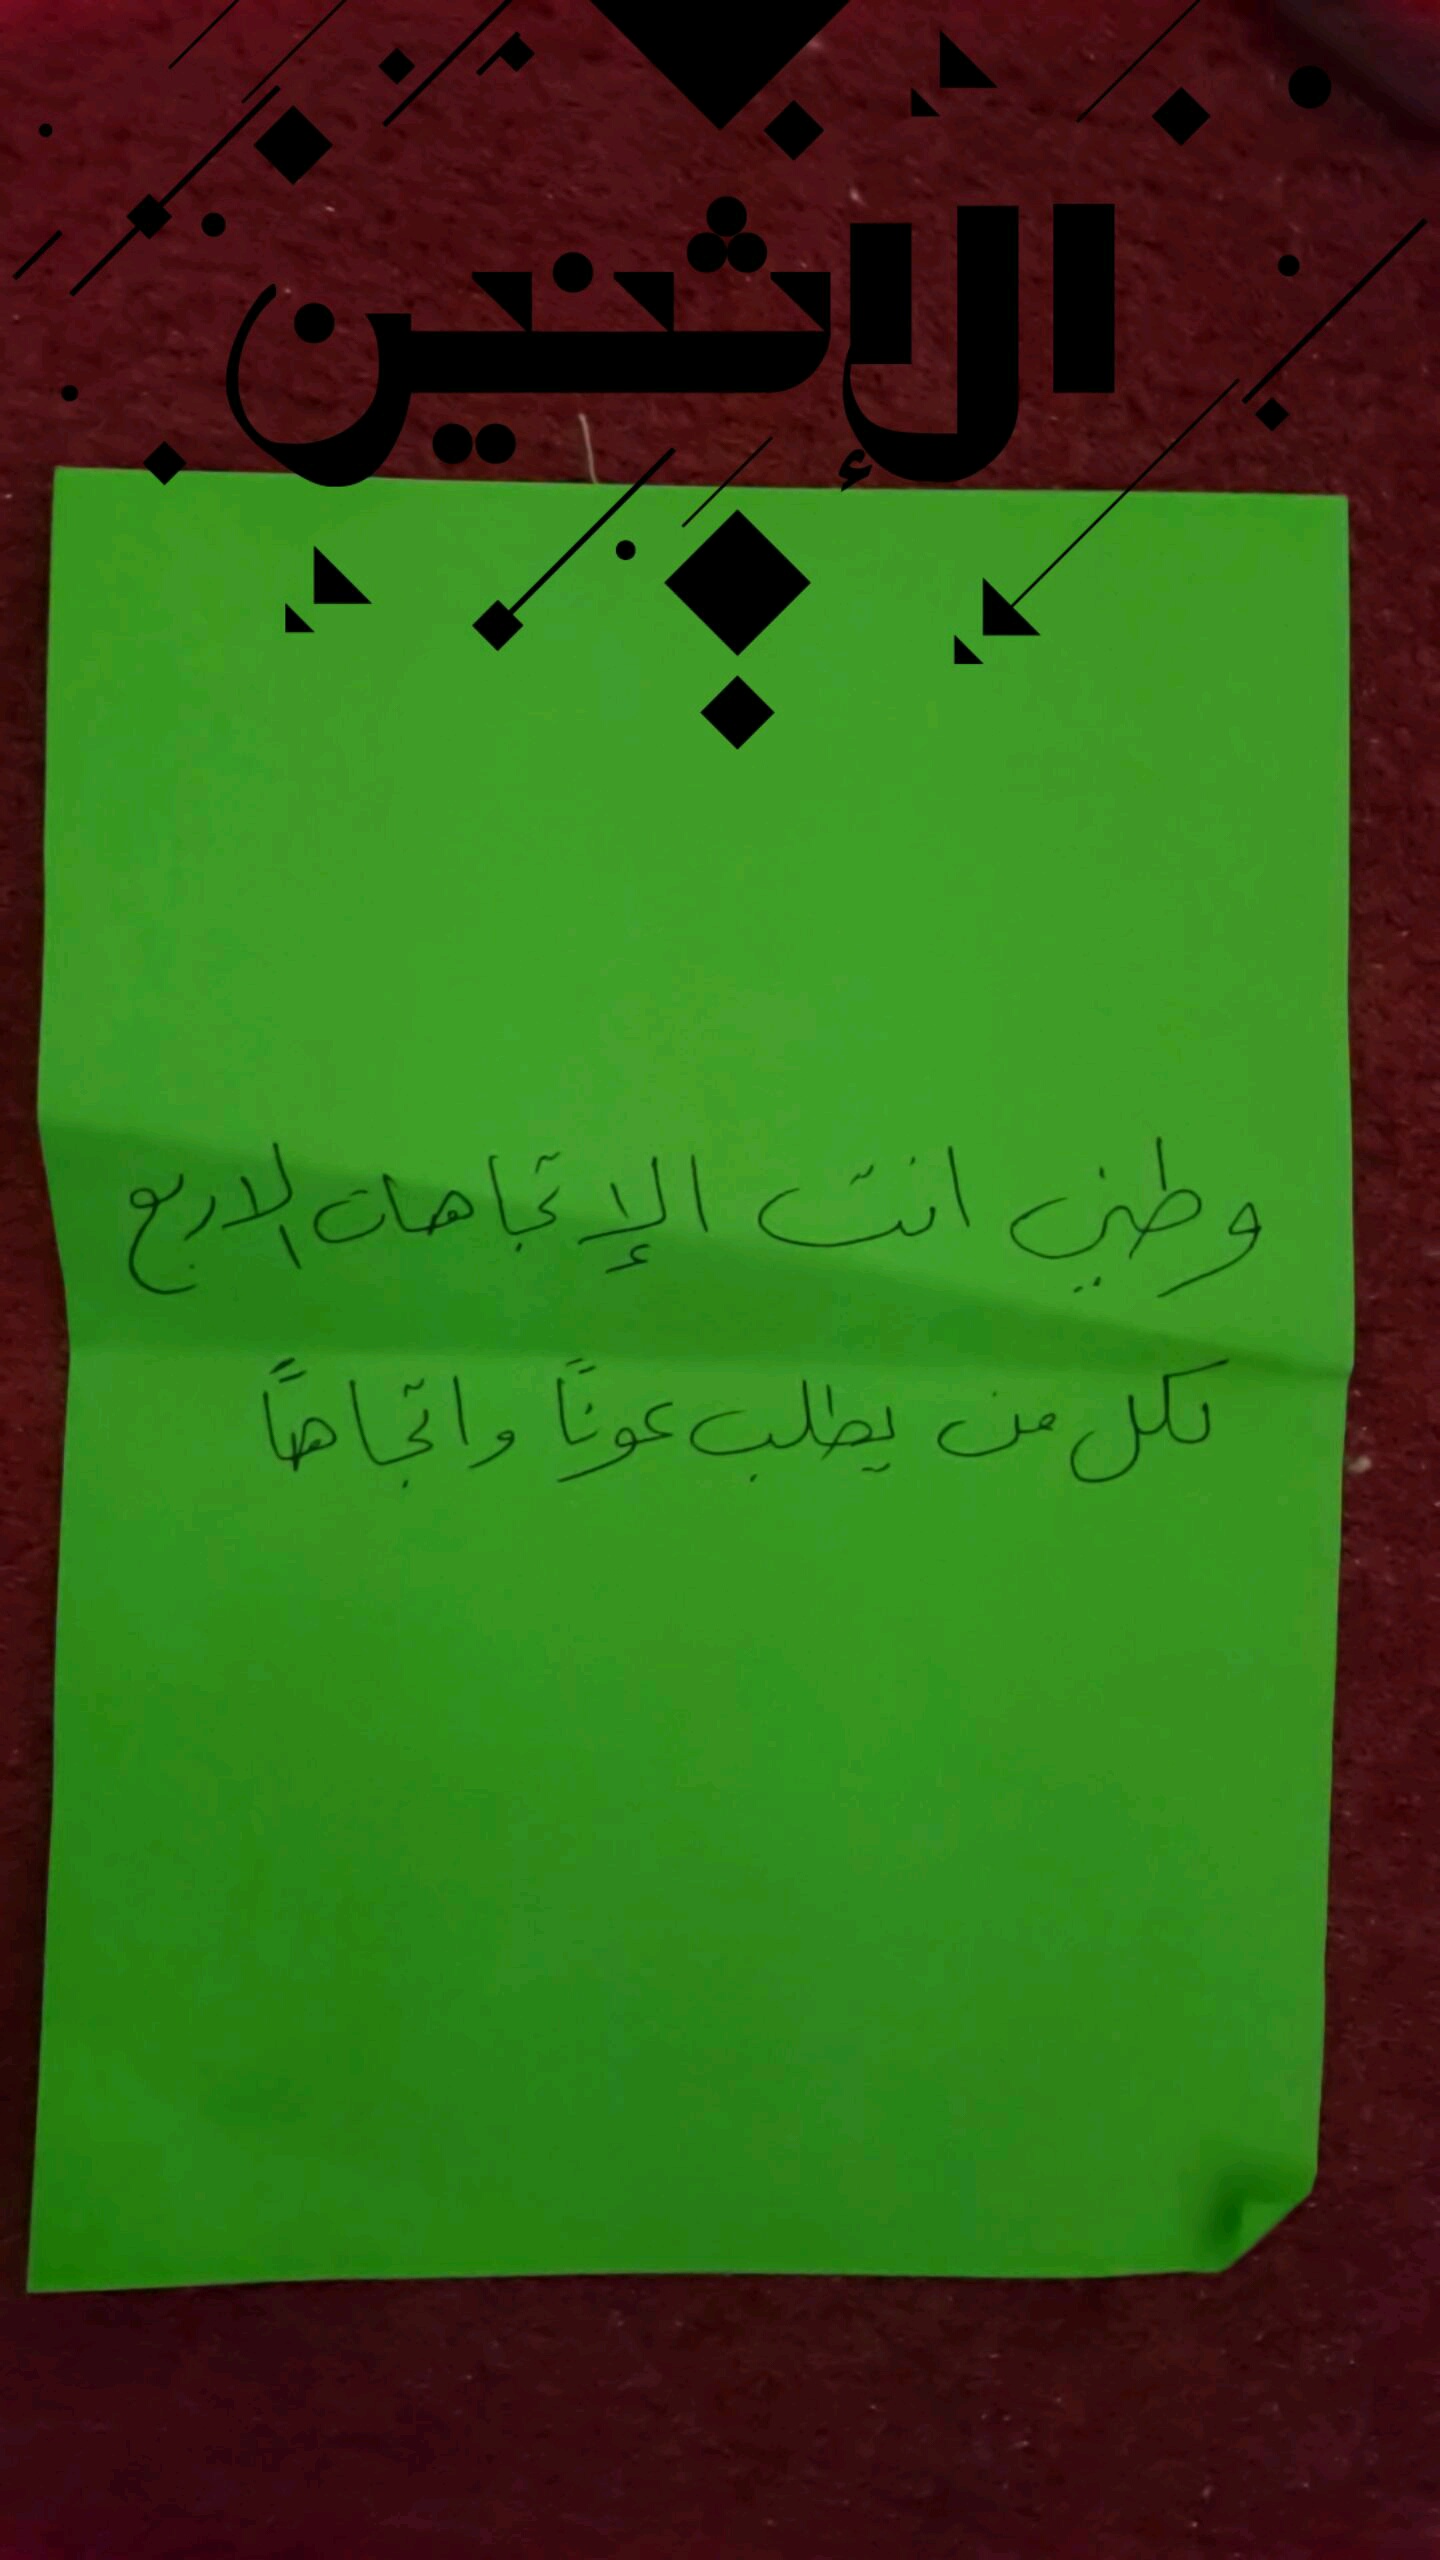 الإثنين
وطني انت الإتجاهات الاربع
لكل من يطلب عونًا واتجاهًا